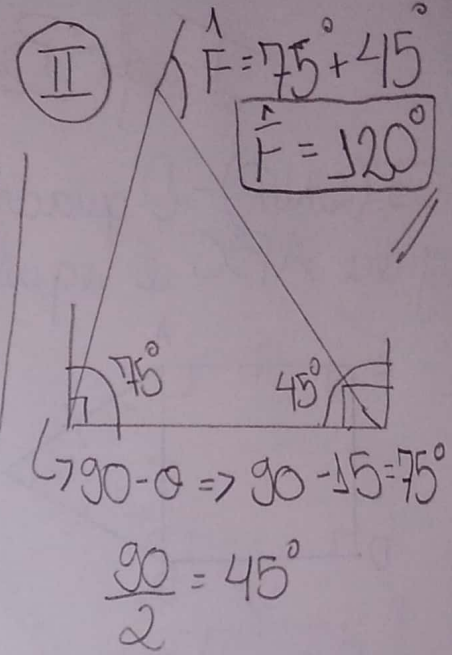 II
F̂ = 75° + 45°
F̂ = 120°
75° 45°
↳ 90 - θ => 90 - 15 = 75°
90/2 = 45°